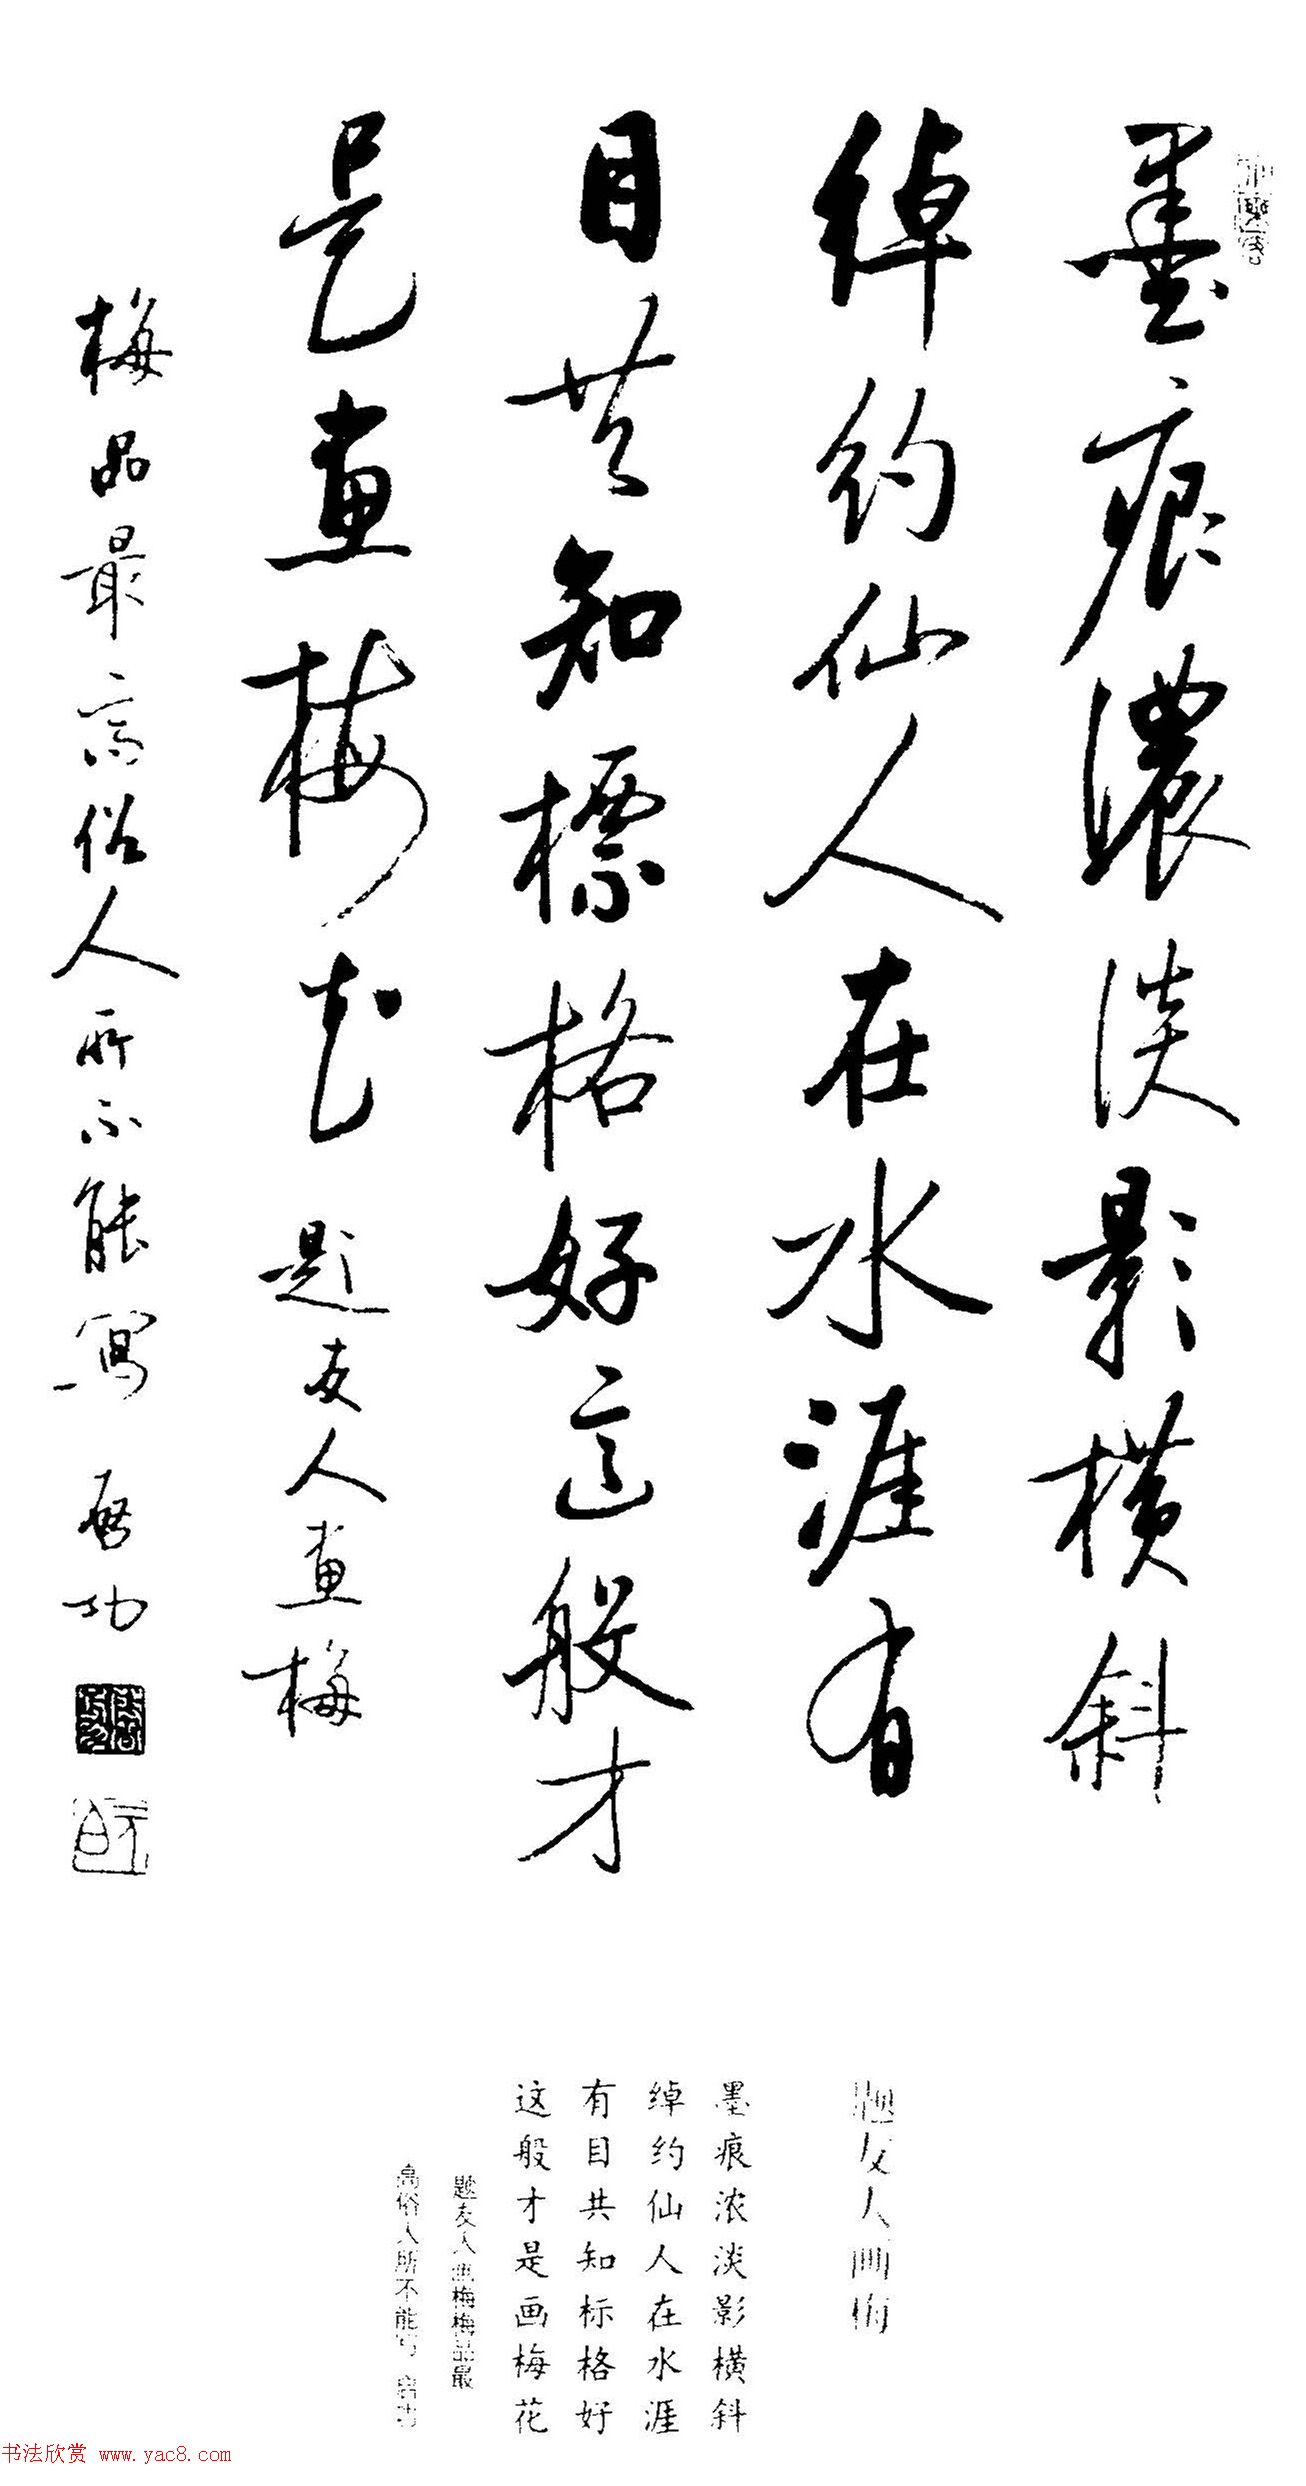 墨痕濃淡影橫斜
綽約仙人在水涯有
目共知標格好這般才
是畫梅花 題友人畫梅
梅品最高俗人所不能寫 啓功
题友人画梅
墨痕浓淡影横斜
绰约仙人在水涯
有目共知标格好
这般才是画梅花
题友人画梅梅品最
高俗人所不能写 启功
书法欣赏 www.yac8.com